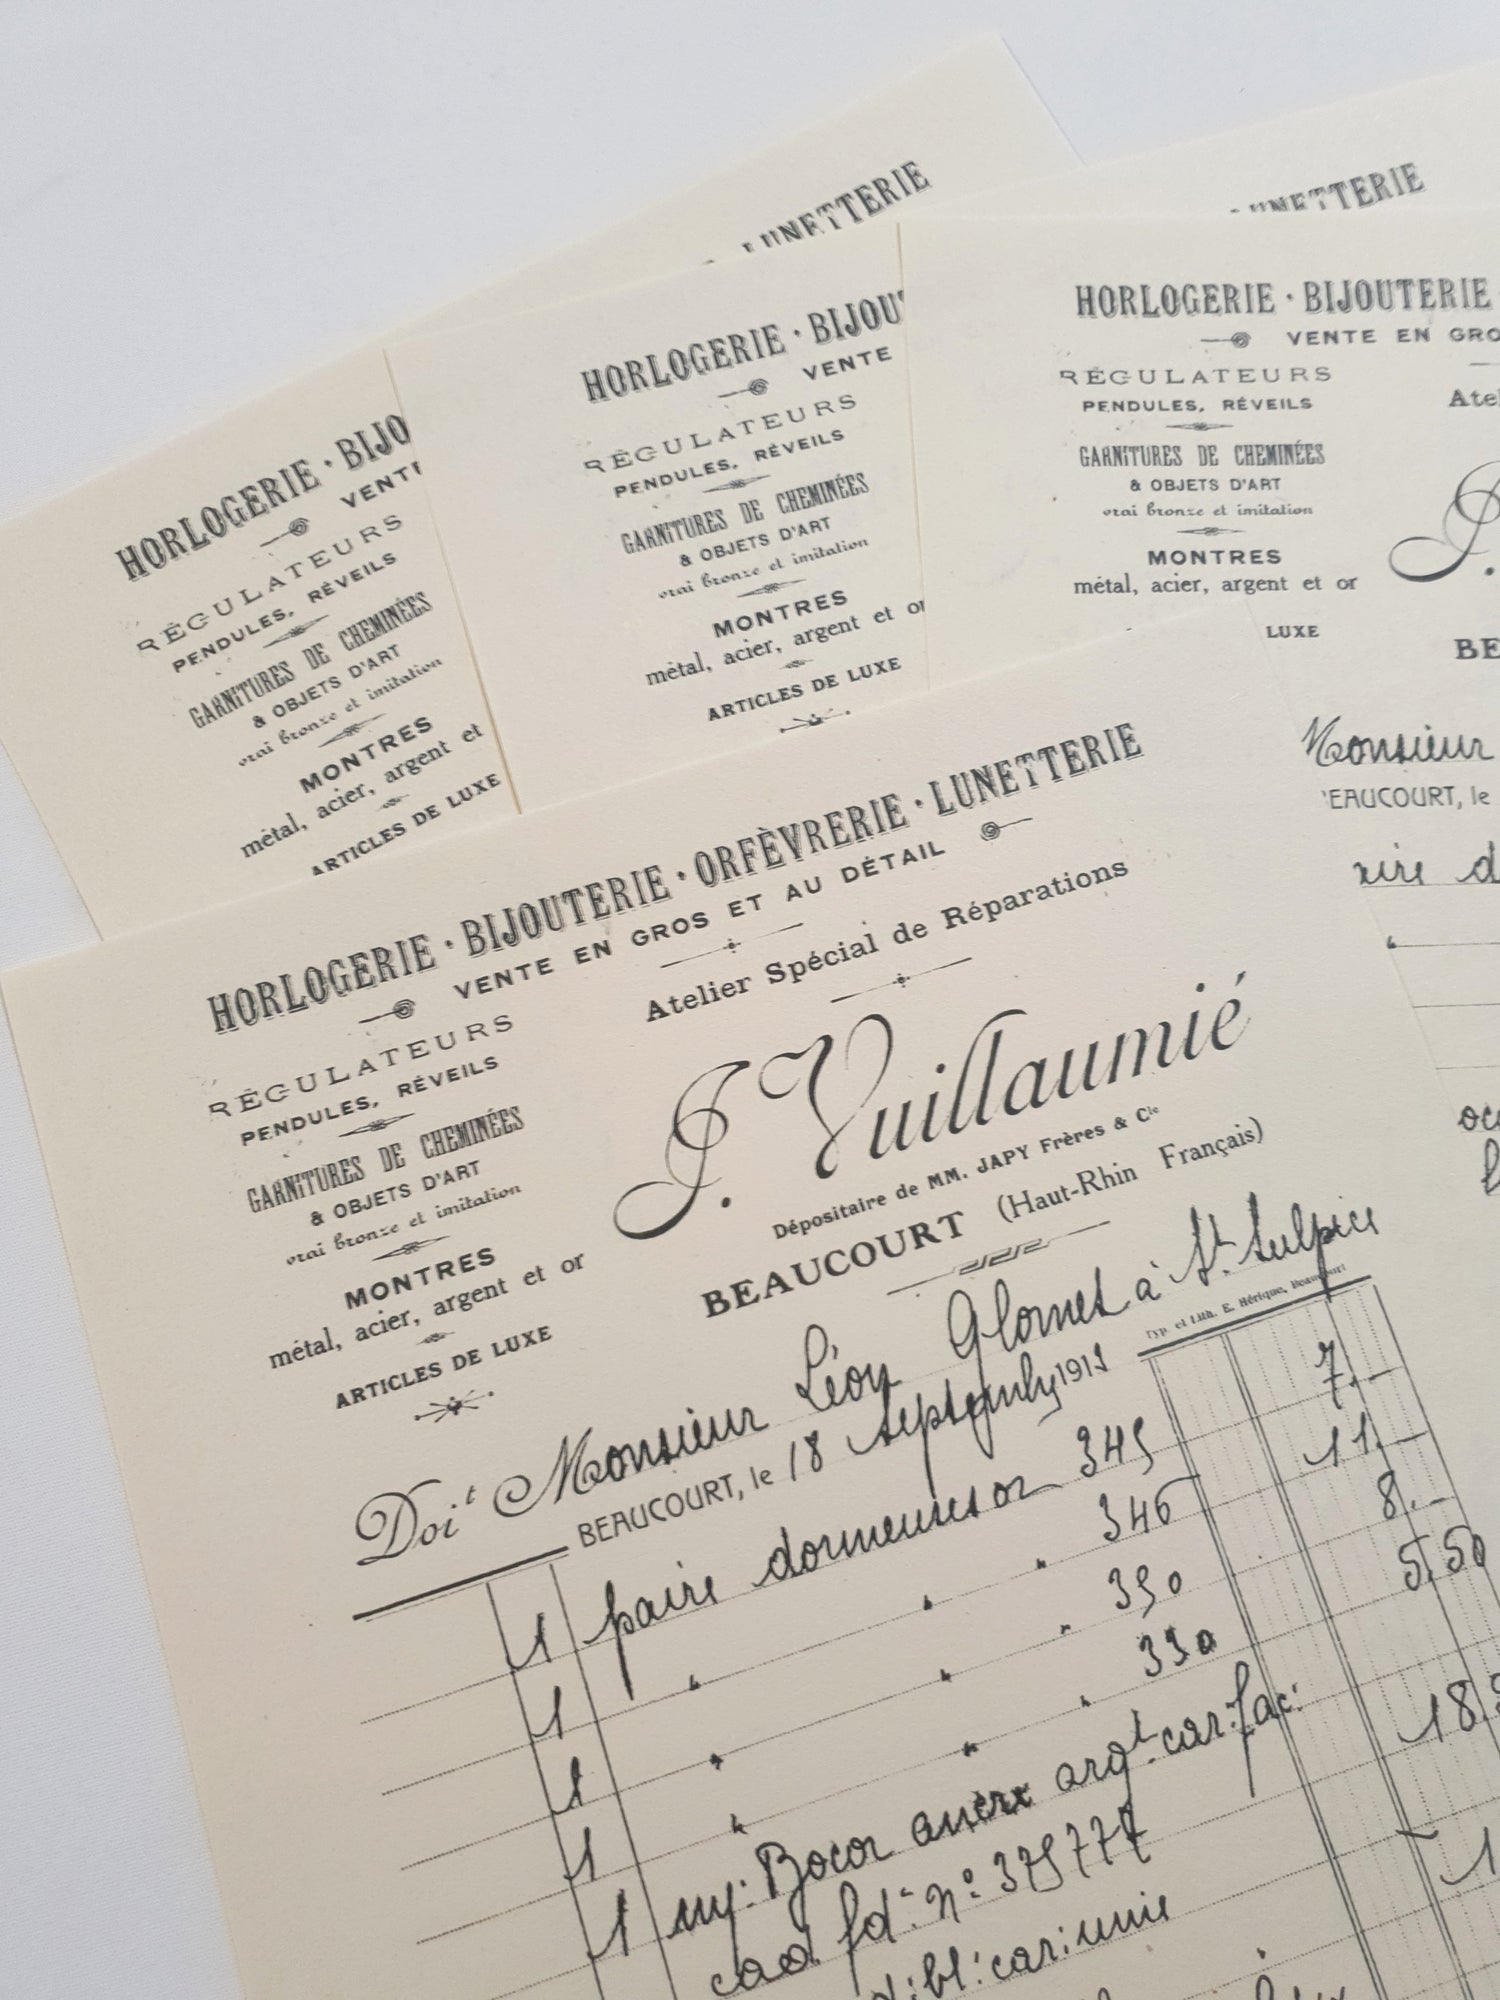 LUNETTERIE
LUNETTERIE
HORLOGERIE · BIJO
VENTE
RÉGULATEURS
PENDULES, RÉVEILS
GARNITURES DE CHEMINÉES
& OBJETS D'ART
vrai bronze et imitation
MONTRES
métal, acier, argent et
ARTICLES DE LUXE
HORLOGERIE · BIJOUT
VENTE
RÉGULATEURS
PENDULES, RÉVEILS
GARNITURES DE CHEMINÉES
& OBJETS D'ART
vrai bronze et imitation
MONTRES
métal, acier, argent et or
ARTICLES DE LUXE
HORLOGERIE · BIJOUTERIE
VENTE EN GRO
RÉGULATEURS
Atel
PENDULES, RÉVEILS
GARNITURES DE CHEMINÉES
& OBJETS D'ART
vrai bronze et imitation
J.
MONTRES
métal, acier, argent et or
LUXE
BE
Monsieur
BEAUCOURT, le
HORLOGERIE · BIJOUTERIE · ORFÈVRERIE · LUNETTERIE
VENTE EN GROS ET AU DÉTAIL
Atelier Spécial de Réparations
J. Vuillaumié
Dépositaire de MM. JAPY Frères & Cie
BEAUCOURT (Haut-Rhin Français)
RÉGULATEURS
PENDULES, RÉVEILS
GARNITURES DE CHEMINÉES
& OBJETS D'ART
vrai bronze et imitation
MONTRES
métal, acier, argent et or
ARTICLES DE LUXE
Typ. et Lith. E. Hérique, Beaucourt
Doit Monsieur Léon Glomet à St. Sulpice
BEAUCOURT, le 18 Septembre 191
1 paire dormeuses or 345 7.-
1 " " " 346 11.-
1 " " " 350 8.-
1 " " " 330 5,50
1 argt. car. fac: 18
cad fd. No: 375777